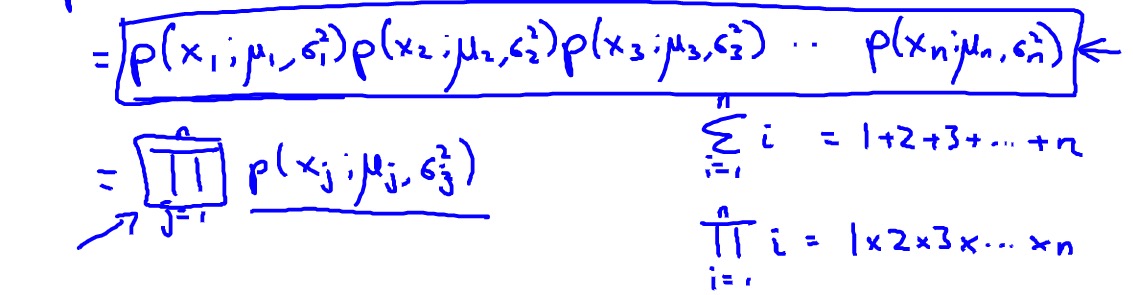 = p(x₁; μ₁, σ₁²) p(x₂; μ₂, σ₂²) p(x₃; μ₃, σ₃²) ·· p(xₙ; μₙ, σₙ²) ←
= ∏ⱼ₌₁ⁿ p(xⱼ; μⱼ, σⱼ²)
∑ᵢ₌₁ⁿ i = 1+2+3+···+n
∏ᵢ₌₁ⁿ i = 1×2×3×···×n